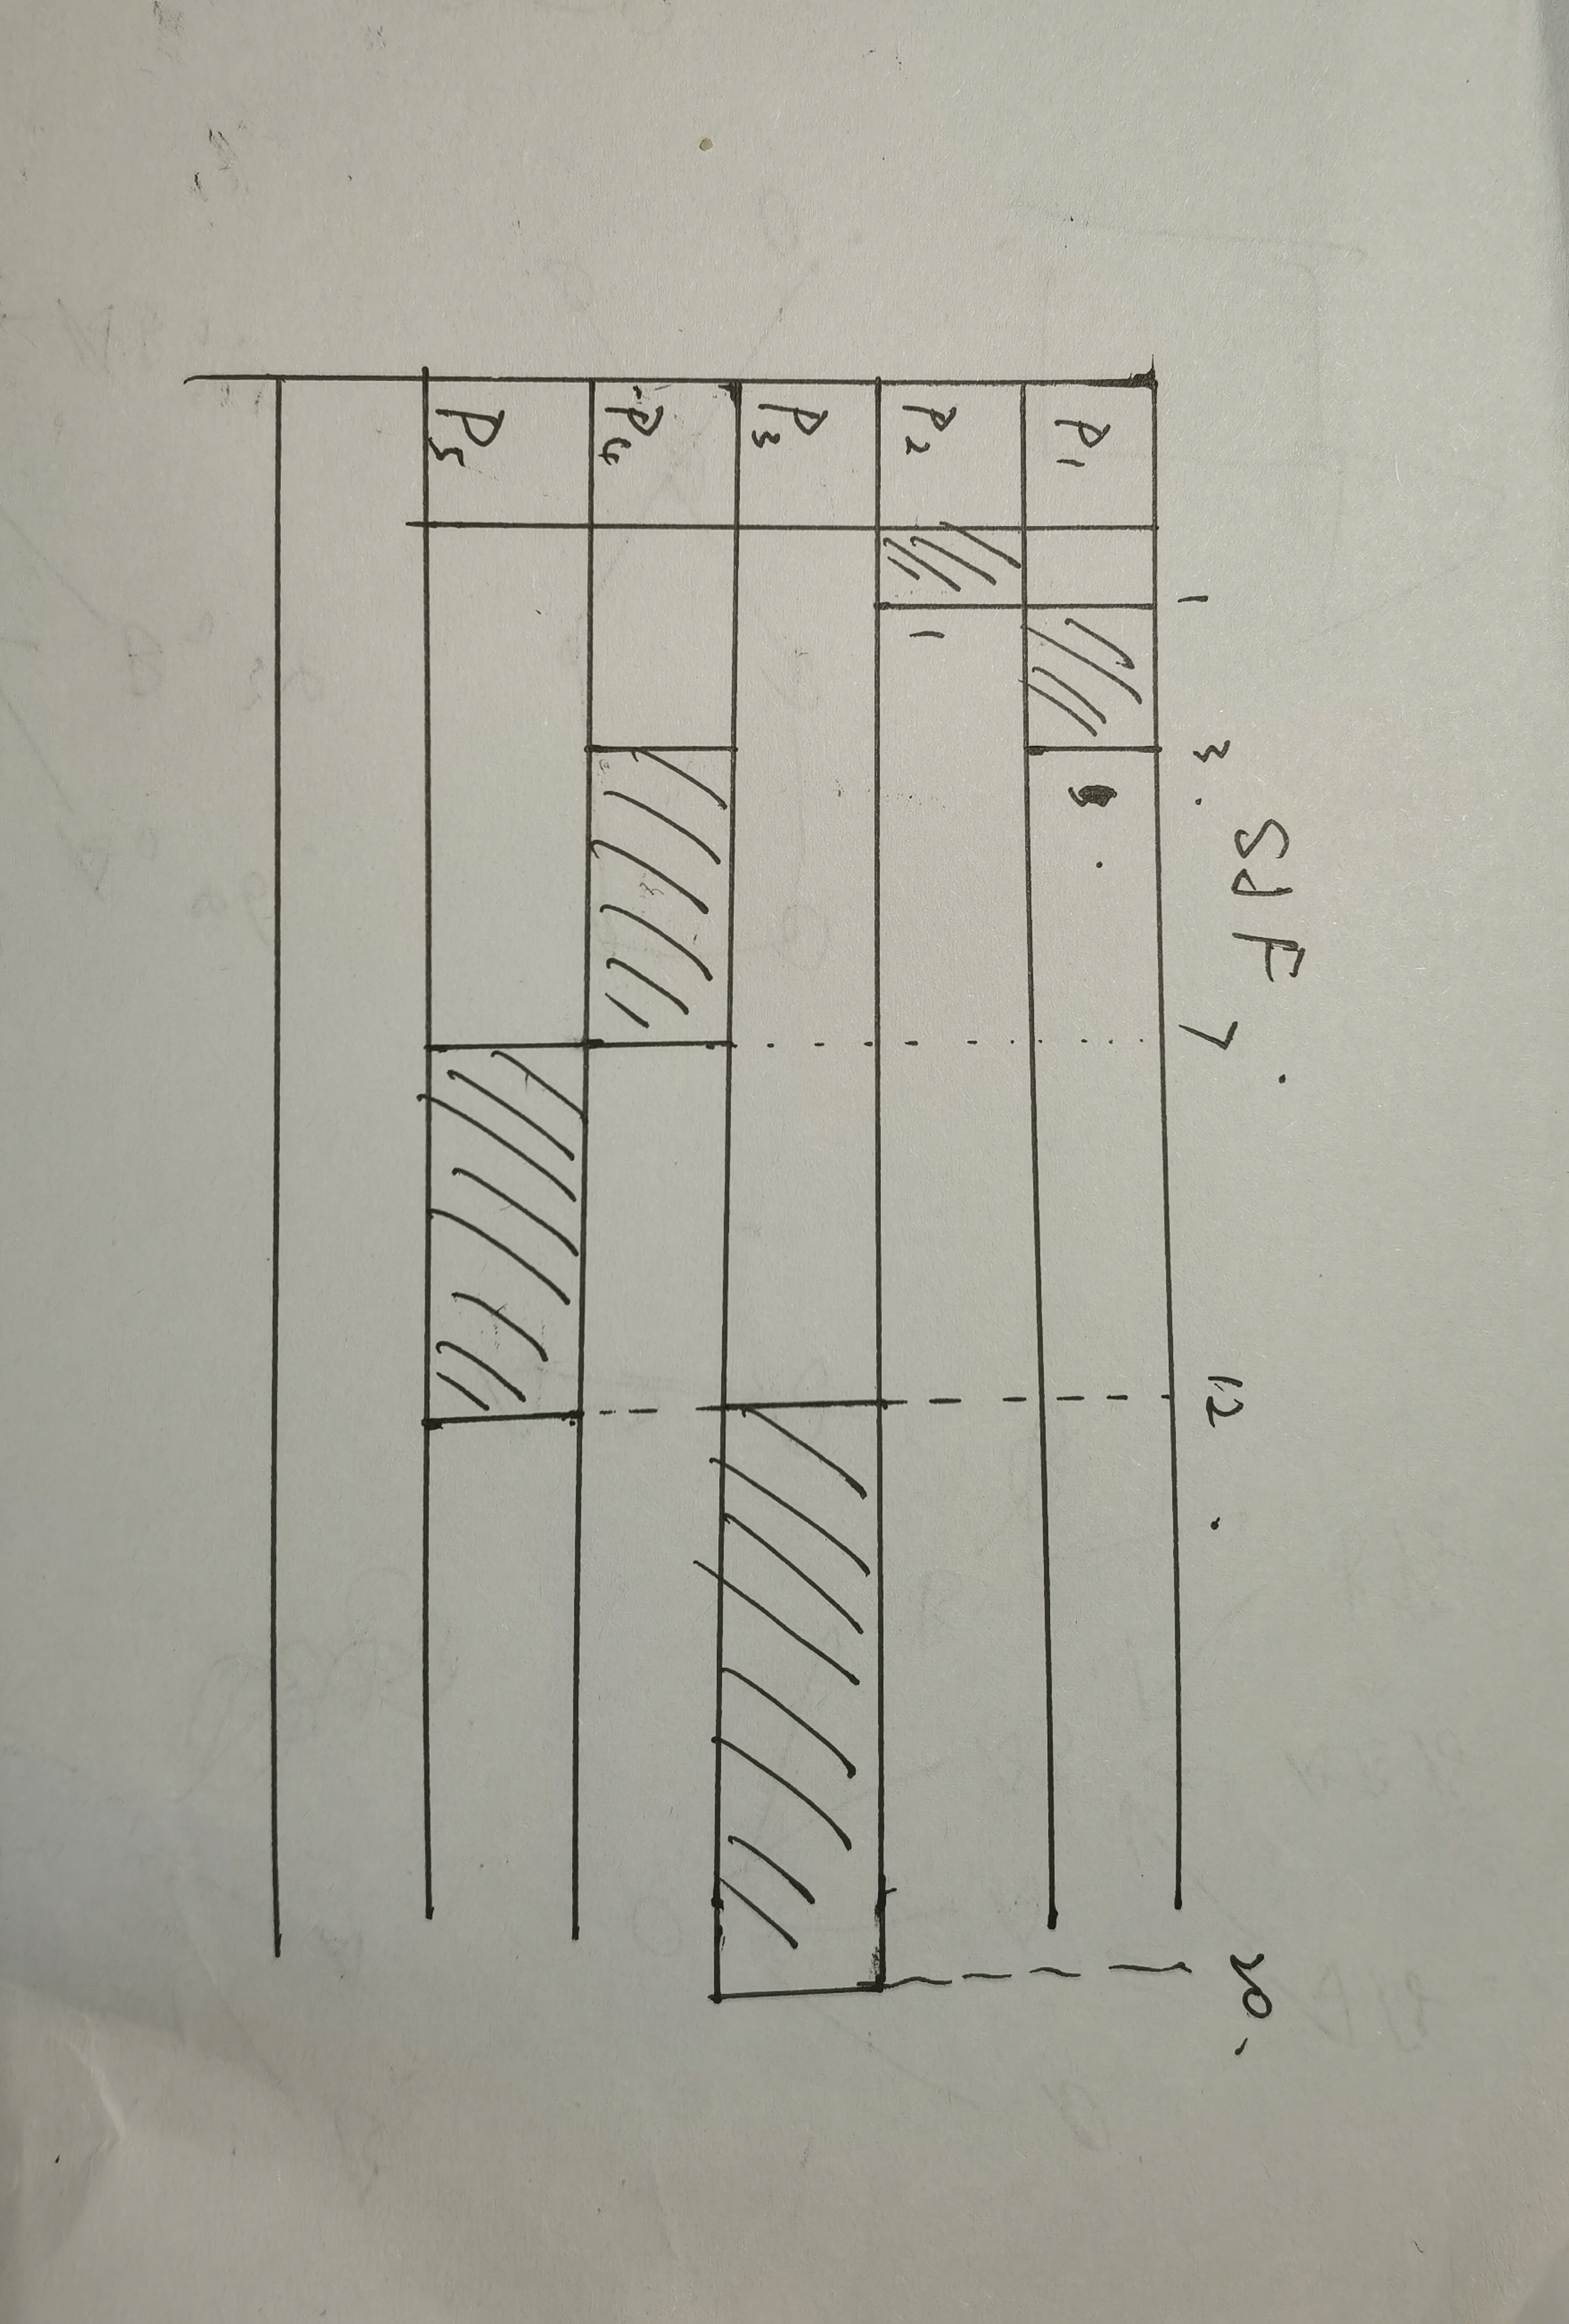 SJF
1 3. 7 12 20.
P1
P2 1
P3
P4
P5